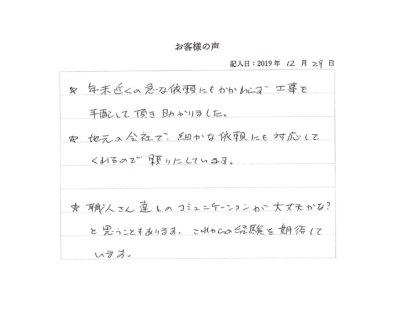 お客様の声
記入日:2019年 12月 29日
☆ 年末近くの急な依頼にもかかわらず 工事を
手配して頂き助かりました。
☆ 地元の会社で、細かな依頼にも対応して
くれるので 頼りにしています。
☆ 職人さん達しのコミュニケーションが大丈夫かな?
と思うこともあります。これからの経験を期待して
います。